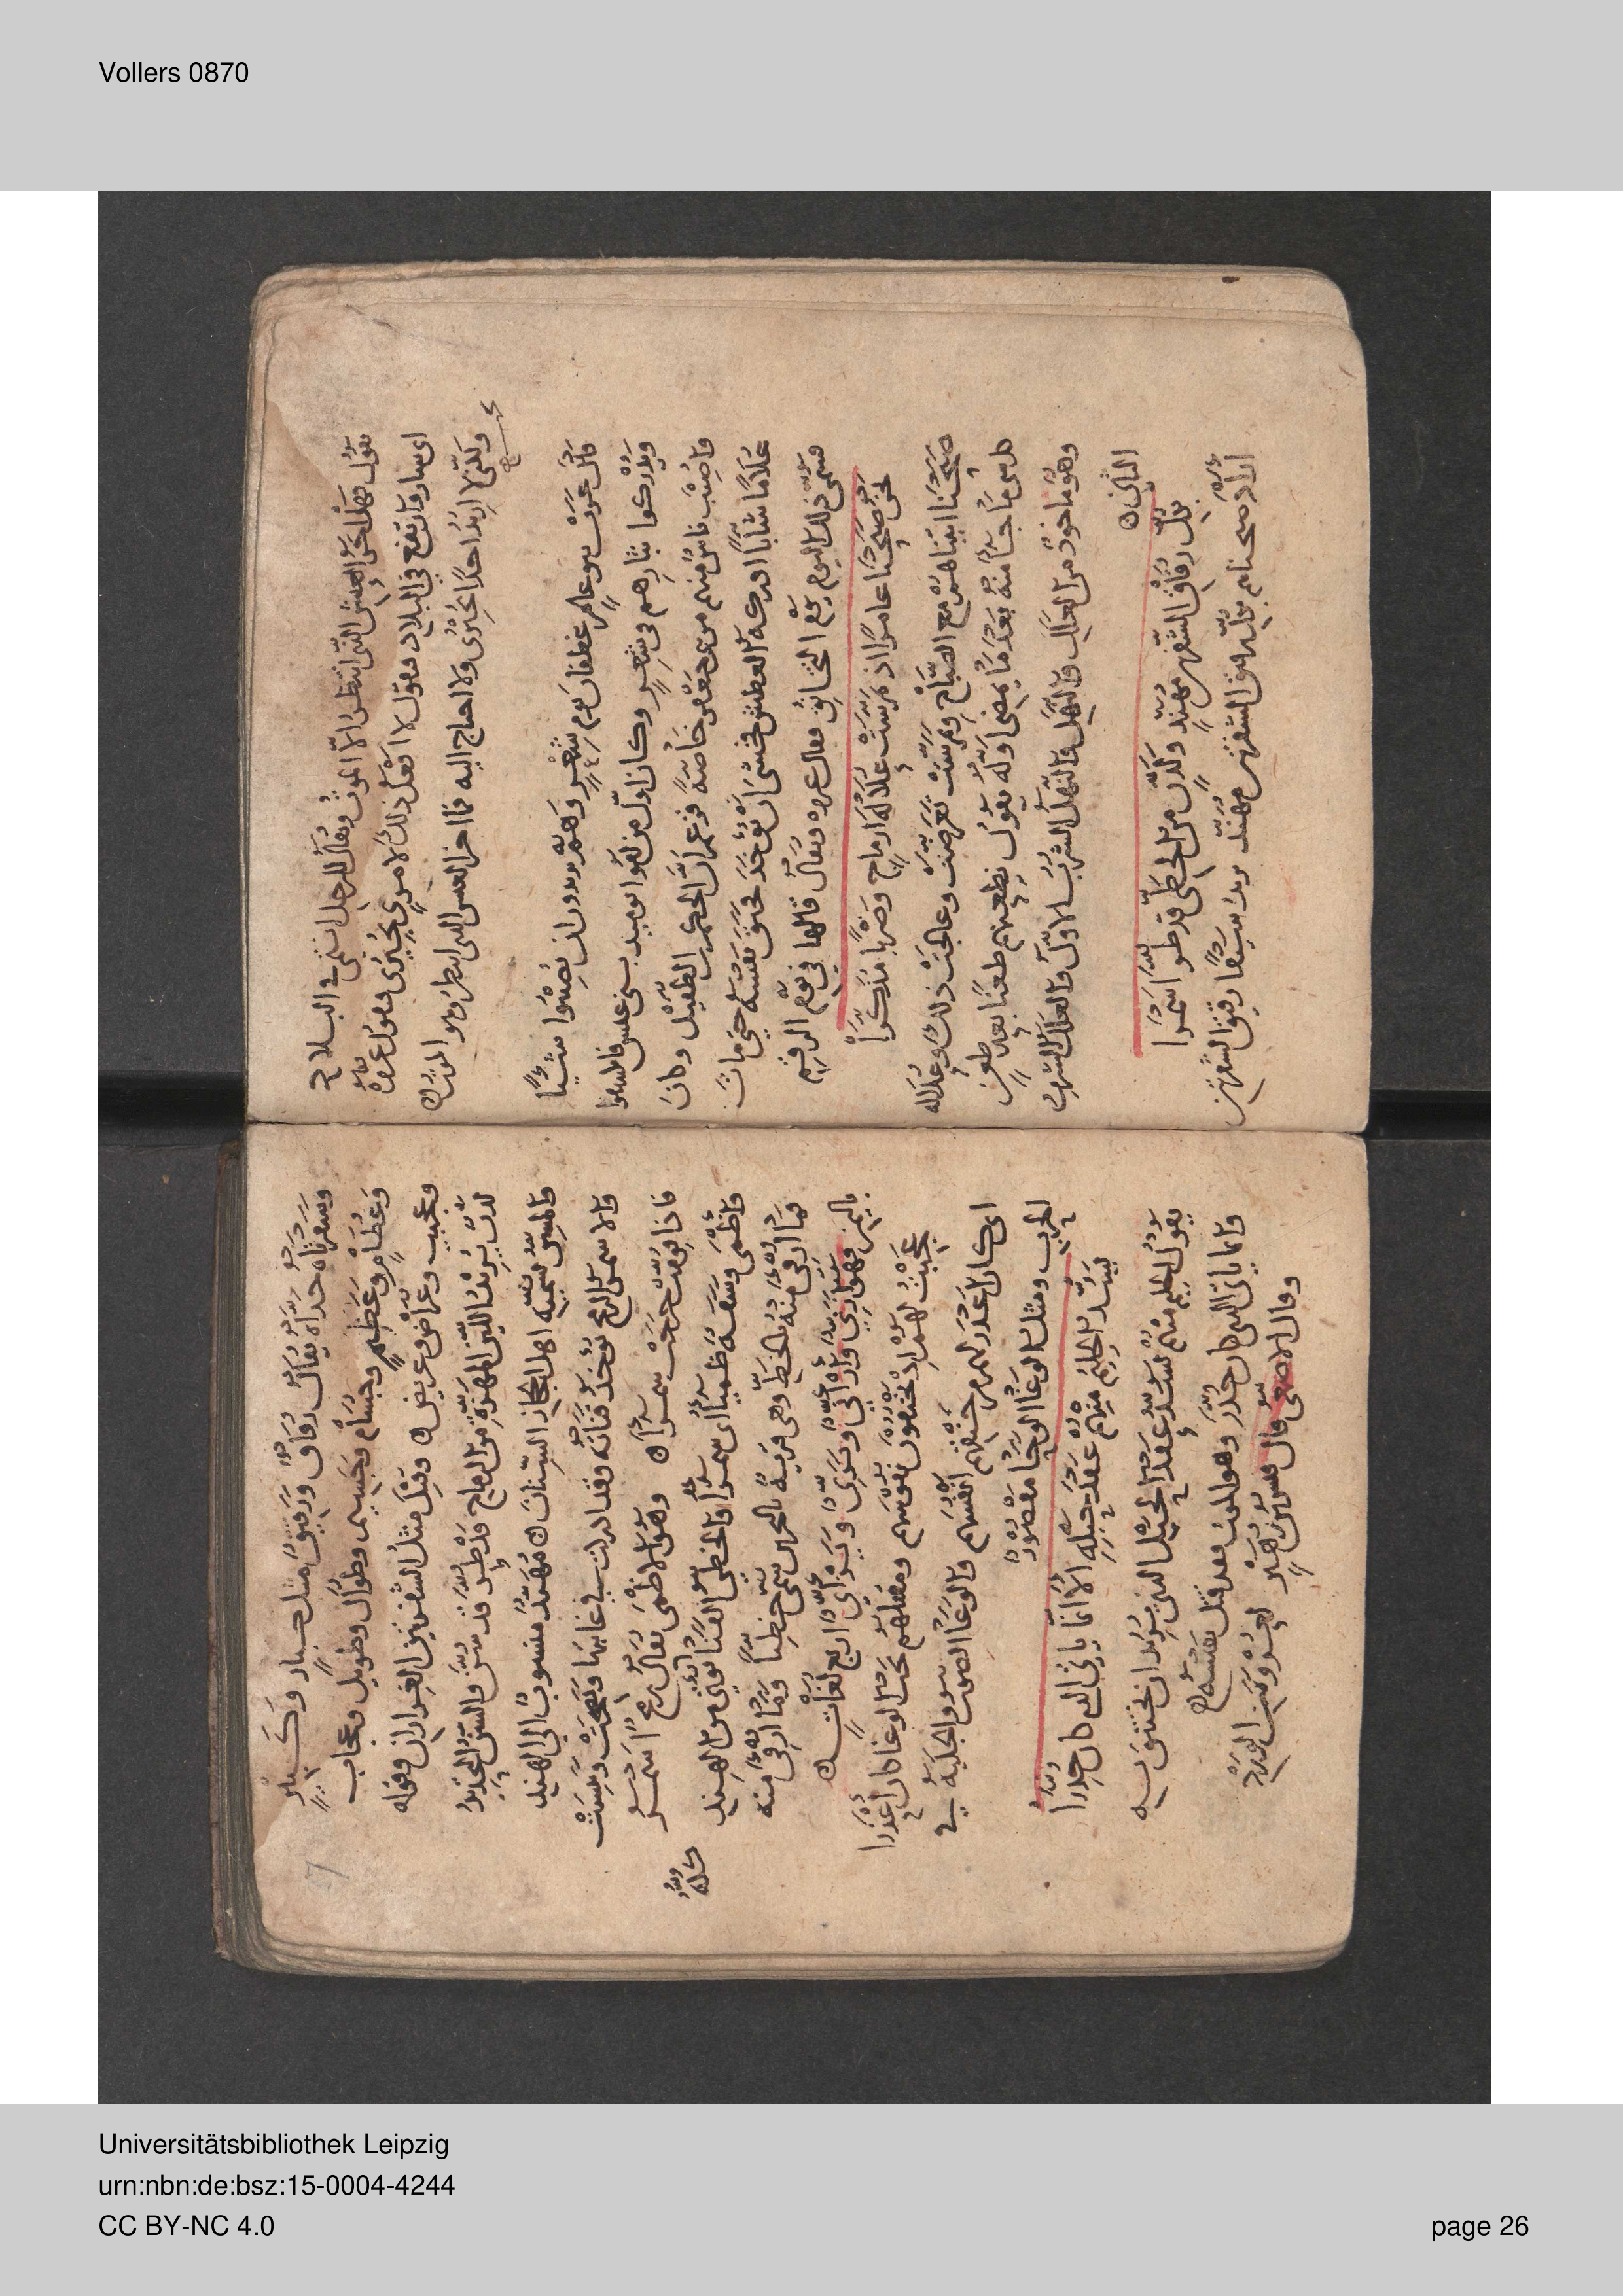 Vollers 0870
يقول فهلاحق العيش التي انتظر الا الموت ويقال للرجل انتمى في البلاد
اى سار وارتفع في البلاد فيقول لا افعل ذلك لامرئ يجبرى فيقول عروة
ولكنى لا اريد احدا يجبرى ولا احتاج اليه
قال عروف بنو عامر غطفان يوم شعر وهم يريدون ان يصيبوا شيئا
ويدركوا بثارهم في شعر وكان اول من لقوا بوميد بنى عبس
واصيب ناس منهم من بنى جعفر خاصة فزعم ان الحكم بن الطفيل وكان
غلاما شابا ادركه العطش فخشى ان يوخذ فخنق نفسه حتى مات
فسمى ذلك اليوم يوم التخانق فقال عروه ويقال قالها في يوم الرقم
نحن صبحنا عامرا اذ تمرست علالة ارماح وضربا مذكرا
صبحنا اتيناهم مع الصباح وتمرست تعرضت وعالجت ذلك وعلالة
كل شى ما جا منه بعد ما يمضى اوله يقول نطعنهم طعنا بعد طعن
وهو ماخوذ من العلل والنهل والنهل الشرب الاول والعلل الشرب
الثانى
بكل رقاق الشفرتين مهند ولدن من الخطى قد طر اسمرا
اراد صبحناهم بكل رقيق الشفرتين مهند يريد سيفا رقيق الشفرتين
وشفرتاه حداه يقال رقاق ورقيق مثل كبار وكبير
وعظام وعظيم وجسام وجسيم وطوال وطويل وعجاب
وعجيب وعراض وعريض وقيل مثل الشفرتين الغراران وقوله
لدن يريد اللين المهزة من الرماح قد طر قد سن والسن التحديد
والمسن تسميه اهل الحجاز السنان مهند منسوب الى الهند
والاسمر الرمح توخذ قناته فقد ادركت في غابها ونضجت ويبست
فاذا قومت خرجت سمراء وهو الاظمى يقال رمح اسمر
واظمى وشفة ظمياء اى سمرا والخطى القنا توتى من الهند
فما ارفى منه بالخط وهى قرية بالبحرين سمى خطيا وما ارفى منه
كله
باليمن فهو ازنى وازانى ويزنى ويزانى اربع لغات
عجبت لهم اذ يخنقون نفوسهم ومقتلهم تحت الوغا كان اعذرا
اى كان اعذر لهم من خنقهم انفسهم والوغا الصوت والجلبة في
الحرب ومثل الوغا الوحا مقصور
يشد الحليم منهم عقد حبله الا انما ياتى الذى كان حذرا
يقول الحليم منهم يشد عقد الحبل الذى يريد ان يختنق به
وانما ياتى الذى كان حذر وهو الموت فقد قتل نفسه
وقال الاصمعى قال قيس بن زهير لعروة بن الورد
7
Universitätsbibliothek Leipzig
urn:nbn:de:bsz:15-0004-4244
CC BY-NC 4.0
page 26